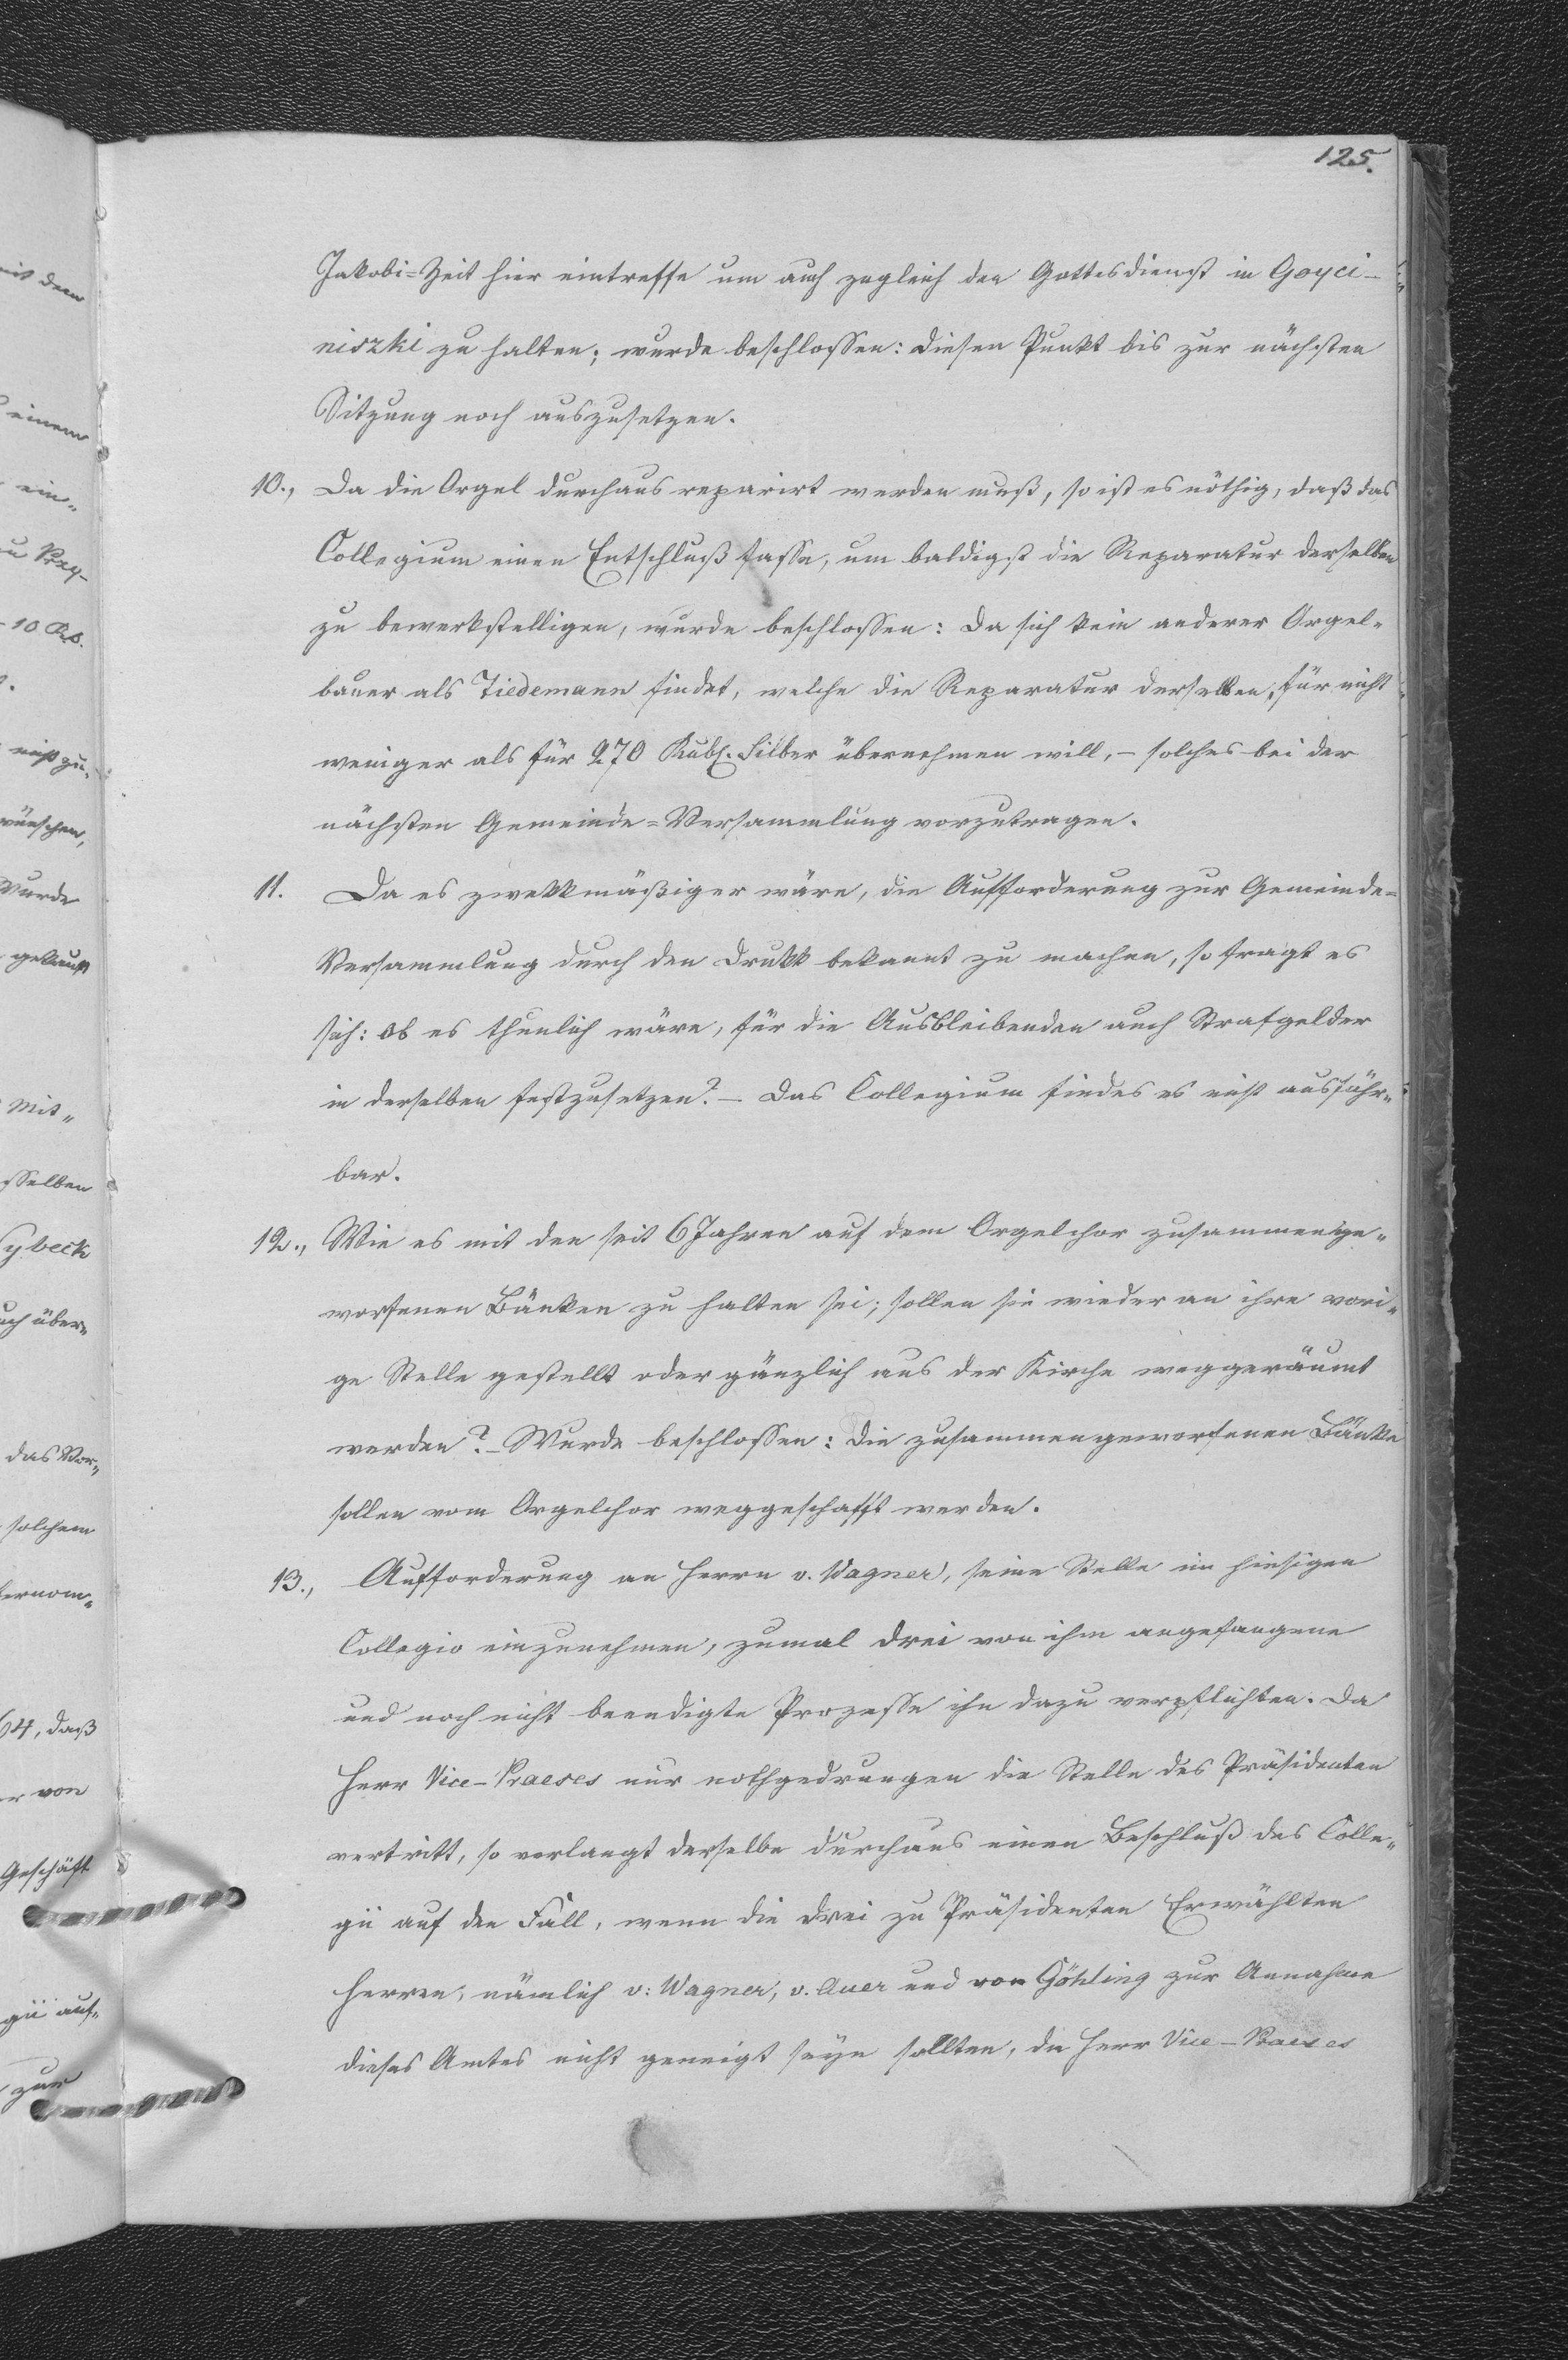 125.
Jakobi=Zeit hier eintreffe um auch zugleich den Gottesdienst in Goyci-
niszki zu halten; wurde beschlossen: diesen Punkt bis zur nächsten
Sitzung noch auszusetzen.
10., Da die Orgel durchaus reparirt werden muß, so ist es nöthig, daß das
Collegium einen Entschluß fasse, um baldigst die Reparatur derselben
zu bewerkstelligen, wurde beschlossen: Da sich kein anderer Orgel-
bauer als Tiedemann findet, welche die Reparatur derselben, für nicht
weniger als für 270 Rubl. Silber übernehmen will, - solches bei der
nächsten Gemeinde=Versammlung vorzutragen.
11. Da es zwekkmäßiger wäre, die Aufforderung zur Gemeinde=
Versammlung durch den Drukk bekannt zu machen, so fragt es
sich: ob es thunlich wäre, für die Ausbleibenden auch Strafgelder
in derselben festzusetzen? - Das Collegium findes es nicht ausführ-
bar.
12., Wie es mit den seit 6 Jahren auf dem Orgelchor zusammenge-
worfenen Bänken zu halten sei; sollen sie wieder an ihre vori-
ge Stelle gestellt oder gänzlich aus der Kirche weggeräumt
werden? - Wurde beschlossen: die zusammengeworfenen Bänke
sollen vom Orgelchor weggeschafft werden.
13., Aufforderung an Herrn v. Wagner, seine Stelle im hiesigen
Collegio einzunehmen, zumal drei von ihm angefangene
und noch nicht beendigte Prozesse ihn dazu verpflichten. Da
Herr Vice-Praeses nur nothgedrungen die Stelle des Präsidenten
vertritt, so verlangt derselbe durchaus einen Beschluß des Colle-
gii auf den Fall, wenn die drei zu Präsidenten Erwählten
Herren, nämlich v: Wagner, v. Auer und von Göhling zur Annahme
dieses Amtes nicht geneigt seyn sollten, da Herr Vice-Praeses